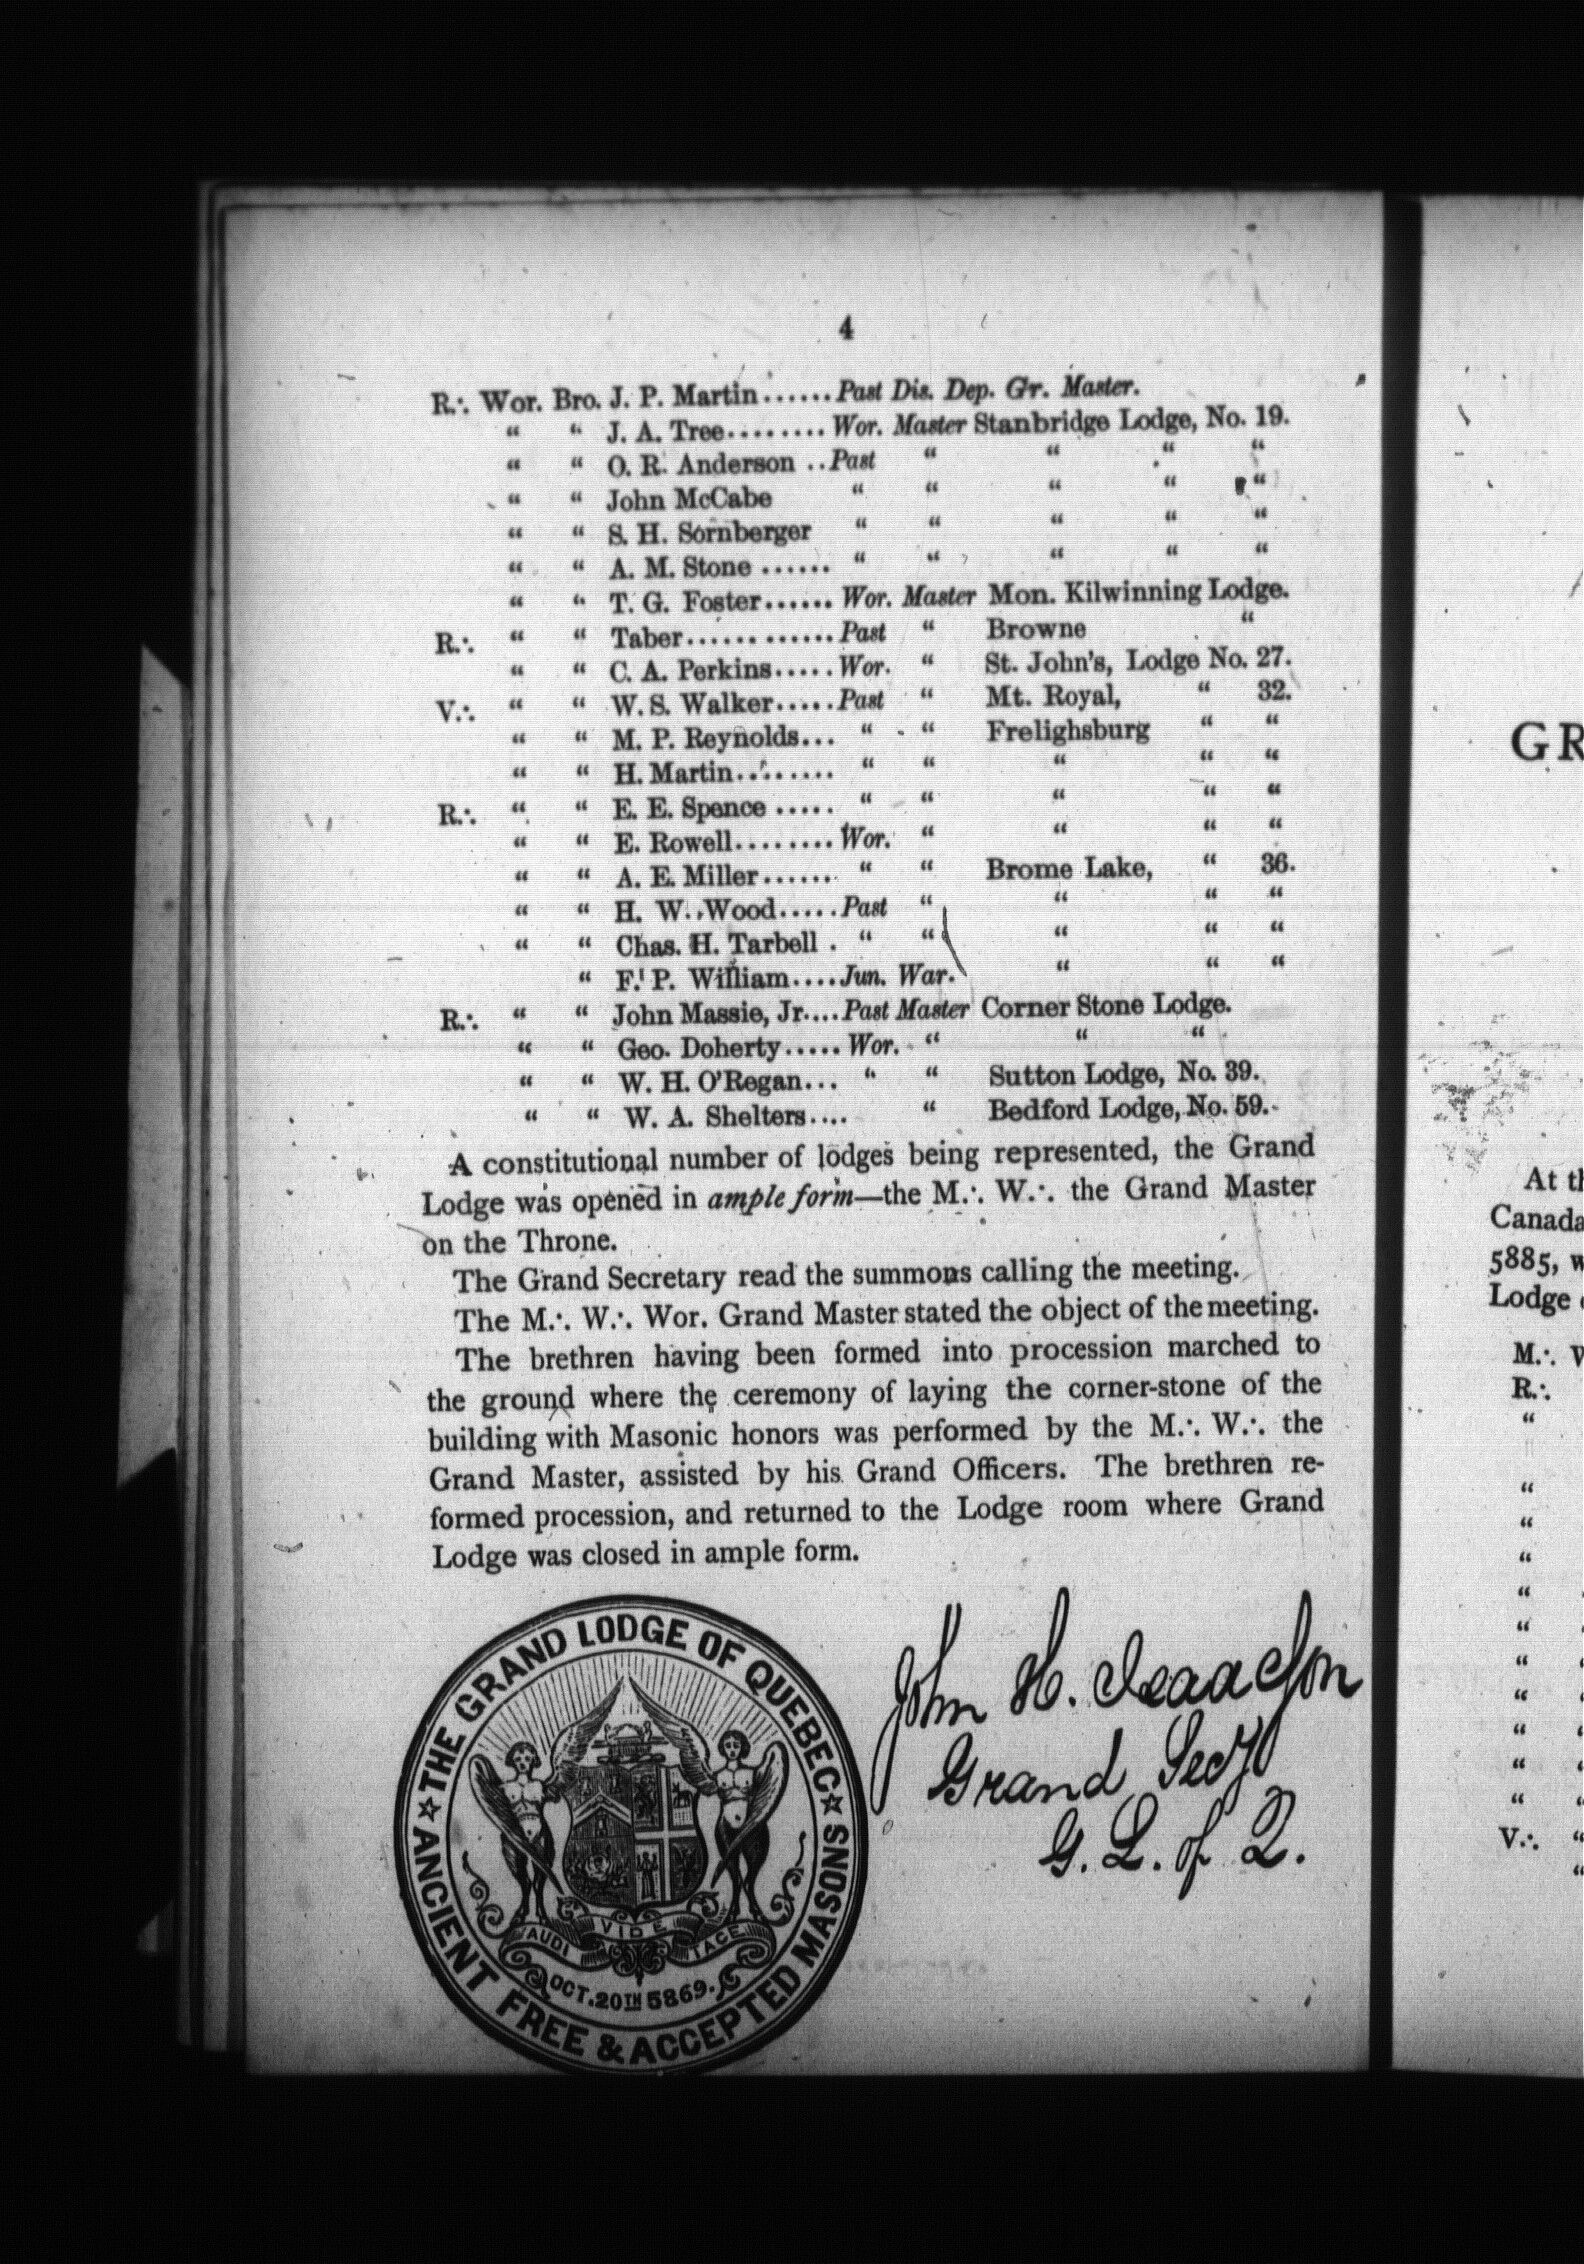 4
R.·. Wor. Bro. J. P. Martin ...... Past Dis. Dep. Gr. Master.
“ “ J. A. Tree ........ Wor. Master Stanbridge Lodge, No. 19.
“ “ O. R. Anderson .. Past “ “ “ “
“ “ John McCabe “ “ “ “ “
“ “ S. H. Sornberger “ “ “ “ “
“ “ A. M. Stone ...... “ “ “ “ “
“ “ T. G. Foster ...... Wor. Master Mon. Kilwinning Lodge.
R.·. “ “ Taber ............ Past “ Browne “
“ “ C. A. Perkins ..... Wor. “ St. John's, Lodge No. 27.
V.·. “ “ W. S. Walker ..... Past “ Mt. Royal, “ 32.
“ “ M. P. Reynolds ... “ “ Frelighsburg “ “
“ “ H. Martin ........ “ “ “ “ “
R.·. “ “ E. E. Spence ..... “ “ “ “ “
“ “ E. Rowell ........ Wor. “ “ “ “
“ “ A. E. Miller ...... “ “ Brome Lake, “ 36.
“ “ H. W. Wood ..... Past “ “ “ “
“ “ Chas. H. Tarbell . “ “ “ “ “
“ F. P. William .... Jun. War. “ “ “
R.·. “ “ John Massie, Jr .... Past Master Corner Stone Lodge.
“ “ Geo. Doherty ..... Wor. “ “ “
“ “ W. H. O'Regan ... “ “ Sutton Lodge, No. 39.
“ “ W. A. Shelters .... “ Bedford Lodge, No. 59.
A constitutional number of lodges being represented, the Grand
Lodge was opened in ample form—the M.·. W.·. the Grand Master
on the Throne.
The Grand Secretary read the summons calling the meeting.
The M.·. W.·. Wor. Grand Master stated the object of the meeting.
The brethren having been formed into procession marched to
the ground where the ceremony of laying the corner-stone of the
building with Masonic honors was performed by the M.·. W.·. the
Grand Master, assisted by his Grand Officers. The brethren re-
formed procession, and returned to the Lodge room where Grand
Lodge was closed in ample form.
John H. Isaacson
Grand Secy
G. L. of Q.
☆ THE GRAND LODGE OF QUEBEC ☆
ANCIENT FREE & ACCEPTED MASONS
AUDI VIDE TACE
OCT. 20TH 5869.
GR
At th
Canada
5885, w
Lodge
M.·. W
R.·.
“
“
“
“
“
“
“
“
“
“
“
V.·. “
“